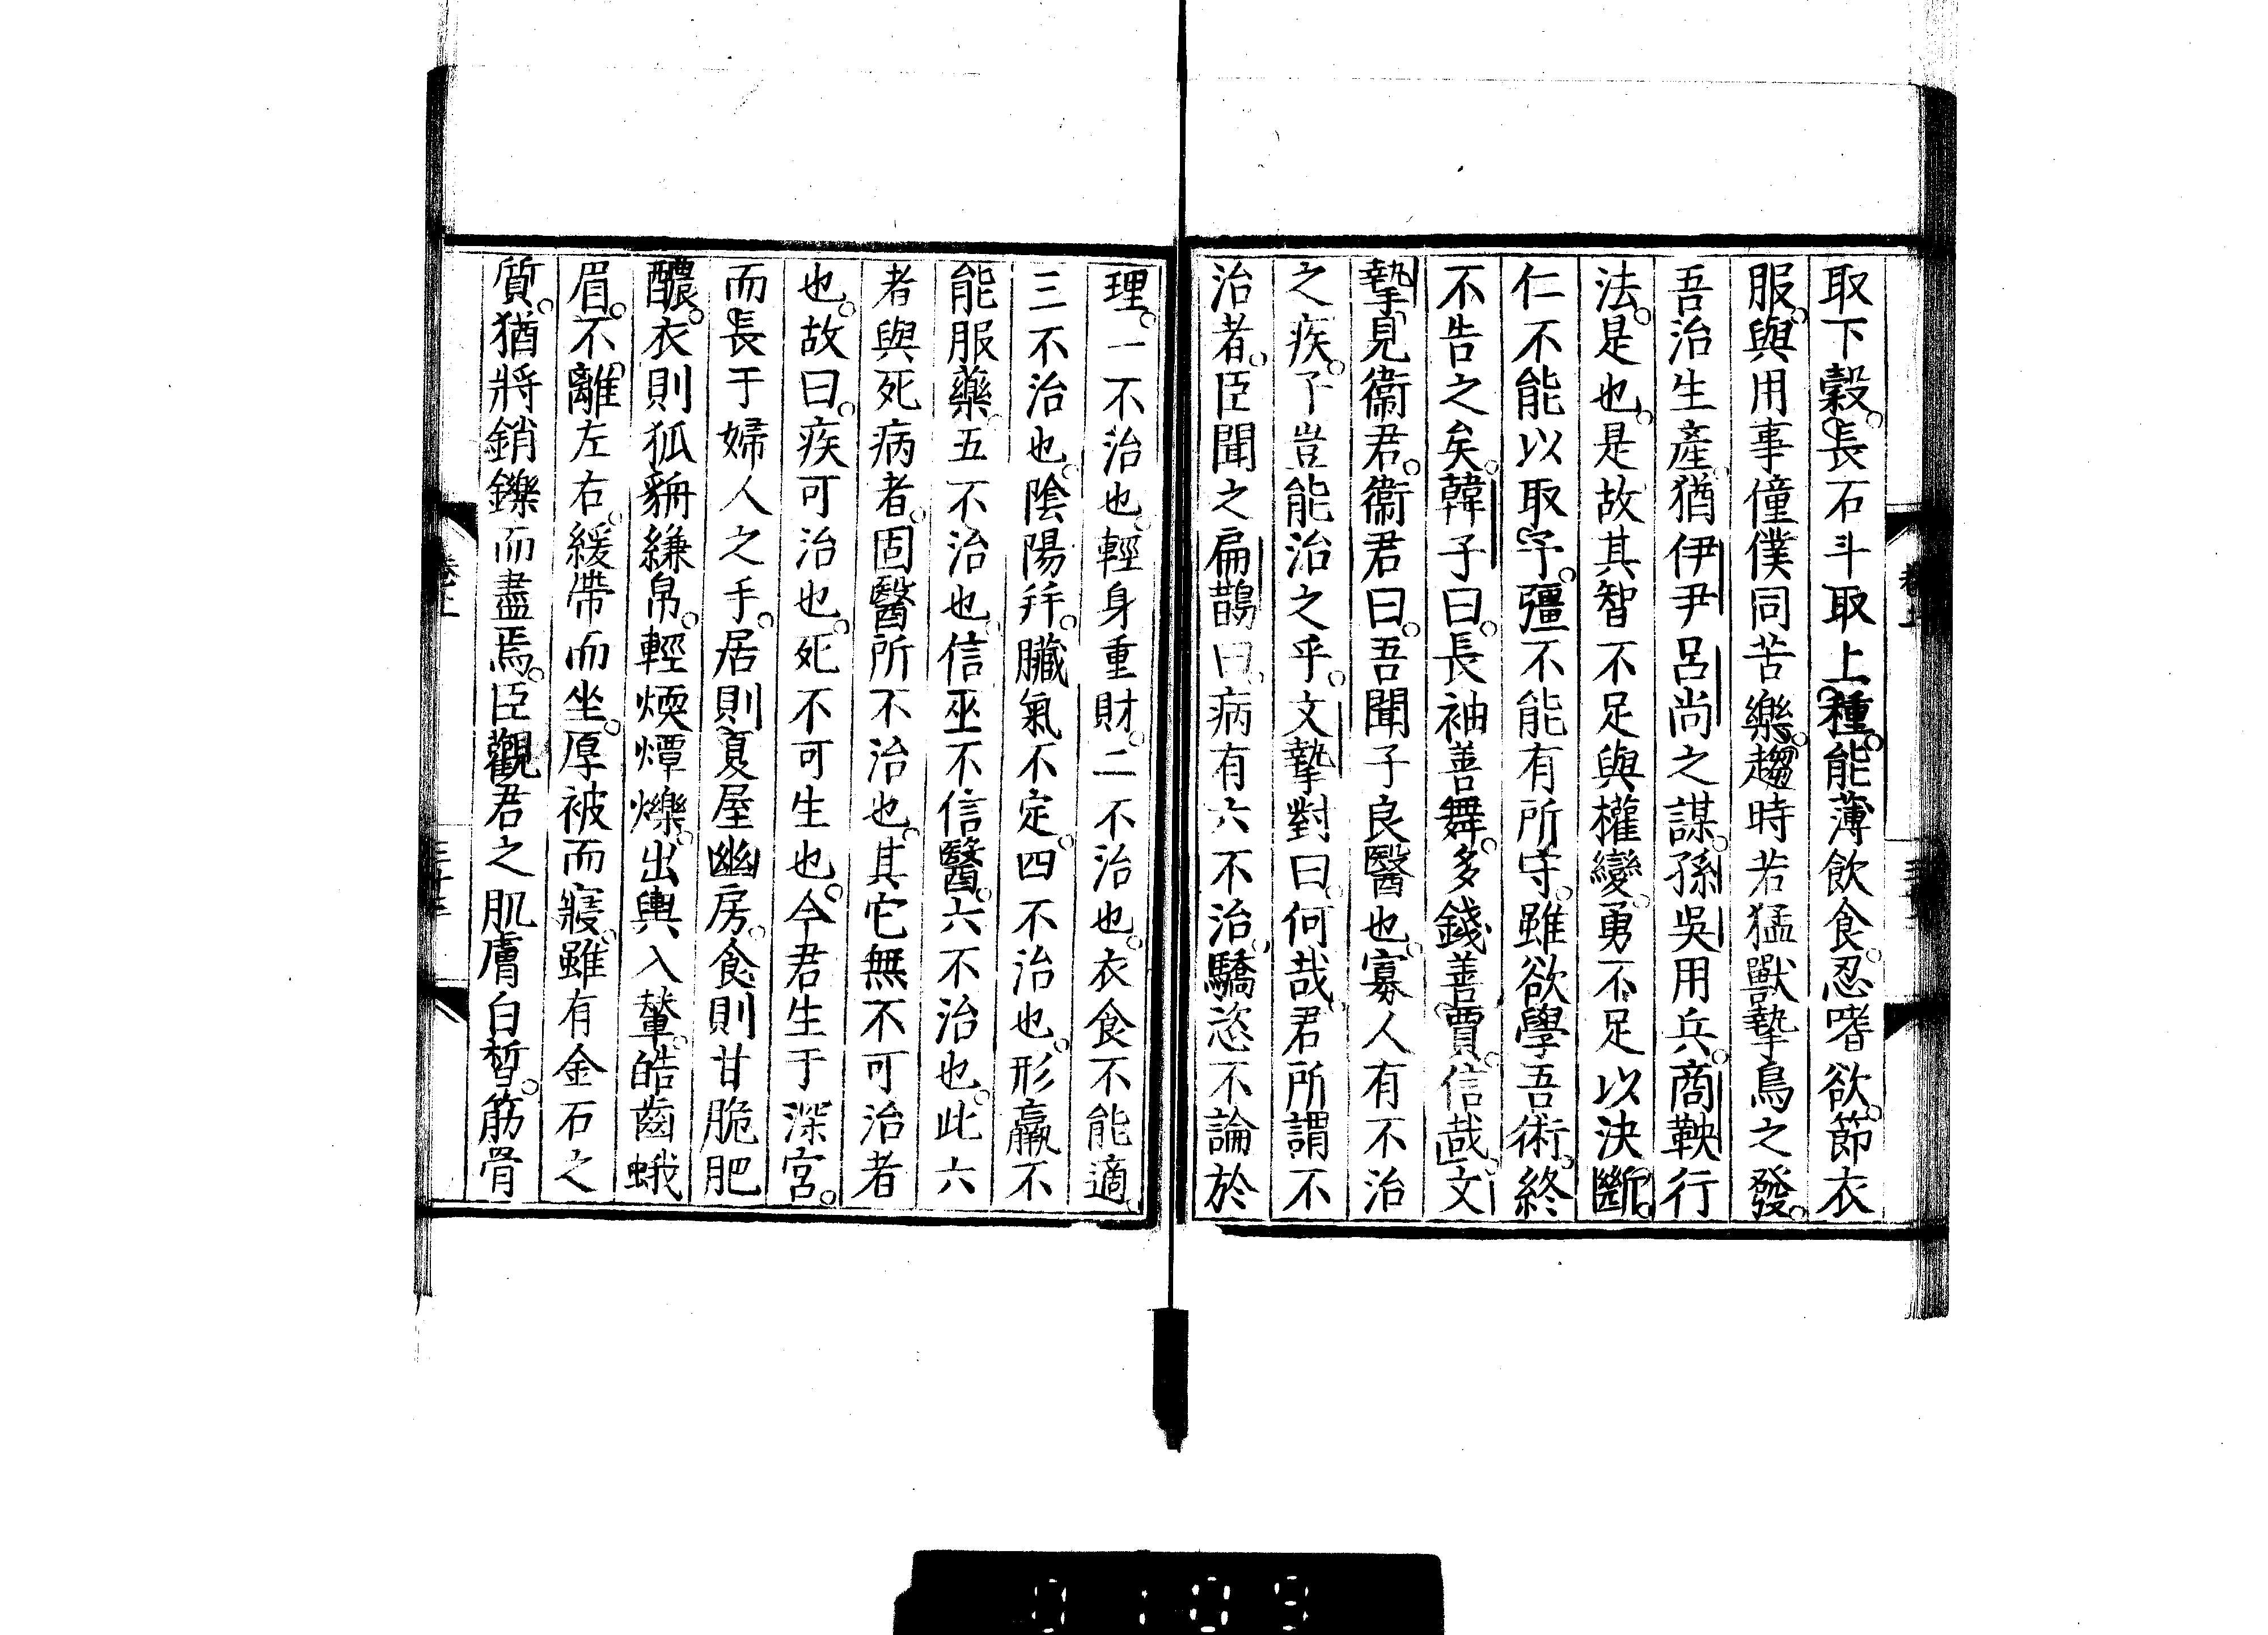 取下穀長石斗取上種能薄飲食忍嗜欲節衣
服與用事僮僕同苦樂趨時若猛獸摯鳥之發
吾治生產猶伊尹呂尚之謀孫吳用兵商鞅行
法是也是故其智不足與權變勇不足以決斷
仁不能以取予彊不能有所守雖欲學吾術終
不告之矣韓子曰長袖善舞多錢善賈信哉文
摯見衞君衞君曰吾聞子良醫也寡人有不治
之疾子豈能治之乎文摯對曰何哉君所謂不
治者臣聞之扁鵲曰病有六不治驕恣不論於
理一不治也輕身重財二不治也衣食不能適
三不治也陰陽幷臟氣不定四不治也形羸不
能服藥五不治也信巫不信醫六不治也此六
者與死病者固醫所不治也其它無不可治者
也故曰疾可治也死不可生也今君生于深宮
而長于婦人之手居則夏屋幽房食則甘脆肥
醲衣則狐貈縑帛輕煗燂爍出輿入輦皓齒蛾
眉不離左右緩帶而坐厚被而寢雖有金石之
質猶將銷鑠而盡焉臣觀君之肌膚白皙筋骨